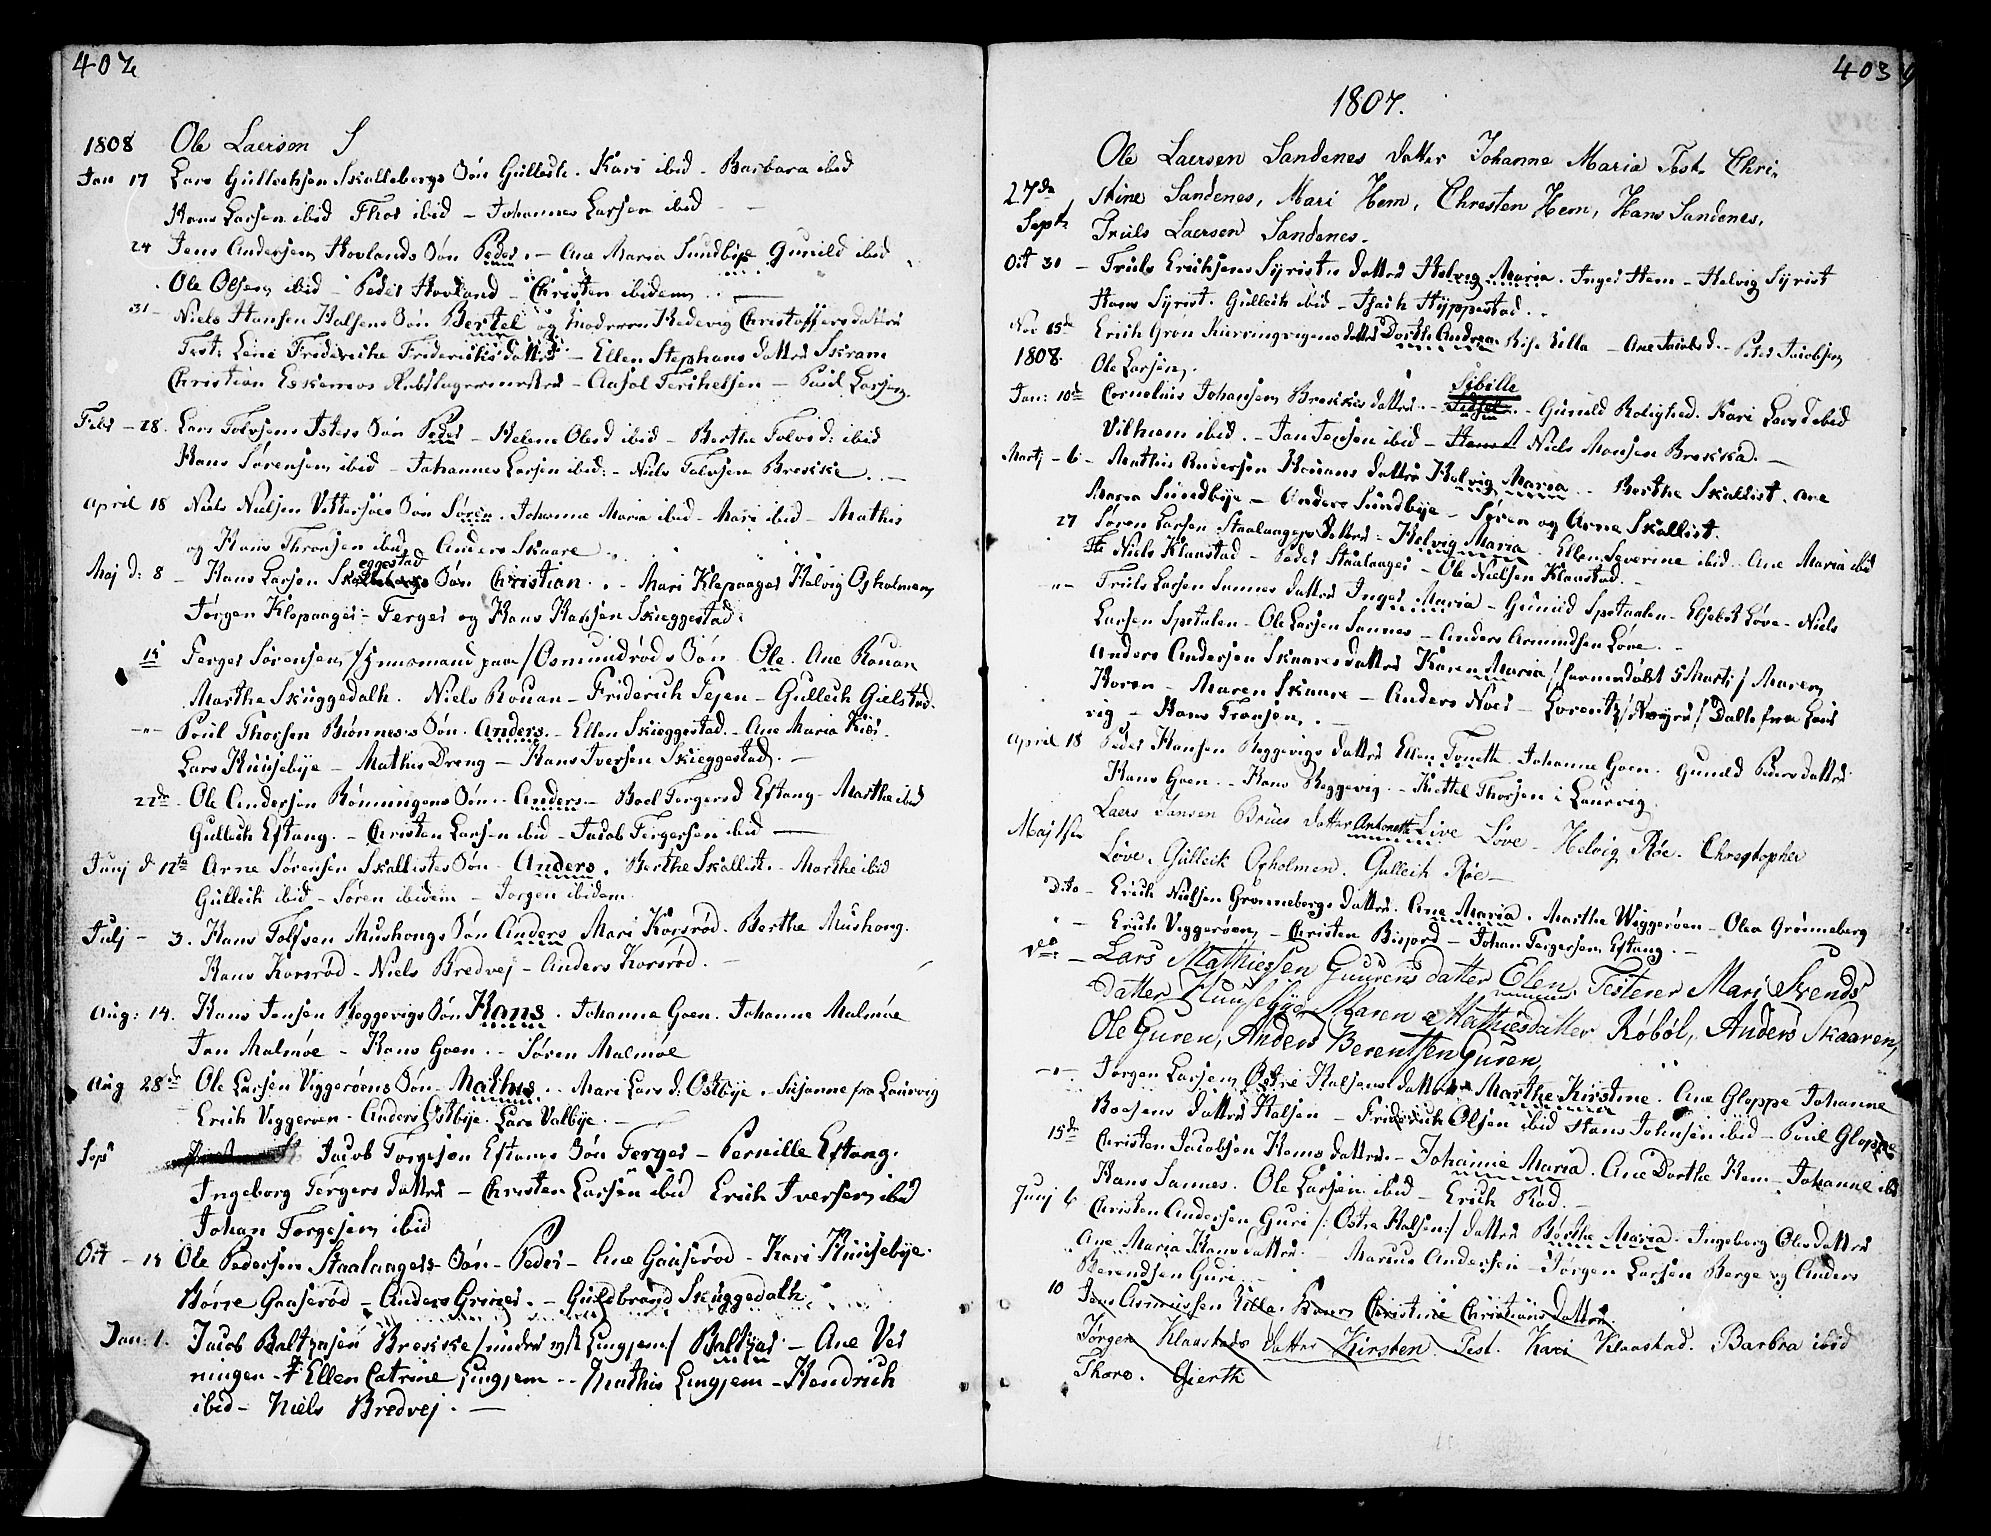 402
1808 Ole Laerson S
Jan 17 Lars Gullechsen Skallebergs Søn Gullech. Kari ibid - Barbara ibid
Hans Larsen ibid Thor ibid - Johannes Larsen ibid - -
24 Jens Andersen Hovlands Søn Peder. - Ane Maria Sundbye Gunild ibid
Ole Olsen ibid - Peder Hovland - Christen ibidem . . -
31 - Niels Hansen Halsens Søn Bertel og Moderen Hedevig Christoffersdatter
Test: Lene Frideriche Friderichsdatter - Ellen Stephans datter Skram
Christian Eskemos Rebslagermester - Aasol Terchelsen - Poul Larsen.
Febr - 28. Lars Tolvsens Isters Søn Peder - Helene Olesd ibid - Berthe Tolvsd: ibid
Hans Sørensen ibid - Johannes Larsen ibid: - Niels Tolvsen Brekke . . -
April 18 Niels Nielsen Vittersøes Søn Søren. Johanne Maria ibid - Mari ibid - Mathis
og Hans Thronsen ibid Anders Skaare
eggestad
Maj d: 8 - Hans Larsen Skallebergs Søn Christian. . - Mari Klepaager Helvig Oxholmen
Jørgen Klopaager - Terger og Hans Hansen Skieggestad.
15 Terger Sørensen /Huusmand paa/ Osmundrøds Søn Ole. Ane Rouan
Marthe Skuggedalh. Niels Rouan - Friderich Tejen - Gullech Gielstad.
-"- Poul Thorsen Bønnes Søn. Anders. - Ellen Skieggestad. - Ane Maria Kiær.
Lars Huusebye - Mathis Dreng - Hans Iversen Skieggestad. -
22de. Ole Andersen Rønningens Søn. - Anders - Boel Tergersd Eftang - Marthe ibid
Gullech Eftang. - Christen Larsen ibid - Jacob Tergersen ibid -
Junj d 12te Arne Sørensen Skallistes Søn - Anders. Berthe Skallist. - Marthe ibid
Gulleik ibid - Søren ibidem - Jørgen ibidem.
Julj - 3. Hans Tolfsen Mushougs Søn Anders Mari Korsrød. Berthe Mushoug.
Hans Korsrød - Niels Bredvej - Anders Korsrød. -
Aug: 14. Hans Jensen Reggevigs Søn Hans. Johanne Goen. Johanne Malmøe
Jan Malmøe - Hans Goen. - Søren Malmøe
Aug 28de Ole Larsen Viggerøens Søn. Mathis. . Mari Lars d: Østbye. Susanne fra Laurvig
Erich Viggerøen - Anders Østbye. Lars Valbye. -
Sepr Jacob Torgesen Eftangs Søn Terger - Pernille Eftang.
Ingeborg Tergers datter - Christen Larsen ibid Erich Iversen ibid
Johan Torgesen ibid
Oct - 15 Ole Pedersen Staalaagers Søn - Peder - Ane Gaaserød - Kari Huusebye.
Børre Gaaserød - Anders Grimes. - Guldbrand Skuggedalh
Jan: 1. Jacob Baltzasen Brekke /under øst Lingjem/ Baltzer - Ane Ves
ningen - Ellen Catrine Lingjem. - Mathis Lingjem - Hendrich
ibid - Niels Bredvej. -
403
1807.
Ole Laersen Sandenes datter Johanne Maria Test. Chri-
27de stine Sandenes, Mari Hem, Chresten Hem, Hans Sandenes,
Septr Truls Laersen Sandenes.
Oct 31 - Truls Erichsens Syrists datter Helvig Maria. Inger Hem - Helvig Syrist
Hans Syrist. Gulleik ibid - Isach Hyppestad. .
Nov 15de Erich Gron Kierringvigens datter Dorth: Andrea. Kise Lilla - Ane Jacobsd. - Peder Jacobsen
1808. Ole Larsen.
Sibille
Jan: 10de Cornelius Johansen Brekkes datter. - Sidsel. - Gunild Rolighed. Kari Larsd ibid
Vilhem ibid. - Jan Jensen ibid - Niels Monsen Brekka. -
Martj - 6 - Mathis Andersen Rouans datter Helvig Maria. - Berthe Skallist. Ane
Maria Sundbye - Anders Sundbye - Søren og Arne Skallist.
27 Søren Larsen Staalaagers datter - Helvig Maria. Ellen Severine ibid. Ane Maria ibid
Niels Klaastad - Peder Staalaager - Ole Nielsen Klaastad. -
-"- Truls Larsen Sannes datter Inger Maria - Gunild Sptaalen - Elsebet Løve - Niels
Larsen Sptalen - Ole Larsen Sannes - Anders Asmundsen Løve. -
Anders Andersen Skaares datter Karen Maria /hiemmedøbt 5 Martj/ Maren
Horen - Maren Skaare - Anders Noes - Lorentz /Dreyer/ Dalte fra Laur
vig - Hans Fransen, . -
April 18 Peder Hansen Reggevigs datter Ellen Tonette. Johanne Goen. Gunild Peders datter
Hans Goen. - Hans Reggevig. - Kittel Thorsen i Laurvig.
Maj 1ste Laers Jansen Brües datter Antonette Live Løve - Helvig Røe. Chrestopher
Løve. Gulleik Oxholmen. Gulleik Røe -
Dito - Erich Nielsen Grønnebergs datter. Ane Maria. Marthe Wiggerøen - Olea Grønneberg
- Erich Viggerøen - Christen Bisjord - Johan Tergersen Eftang. -
Do - Lars Mathiessen Guurens datter Elen, Testerer Mari Svends
datter Huusebye, Maren Mathiesdatter Røbøl, Anders Skaaren,
Ole Guren, Anders Berentsen Guren,
-"- Jørgen Larsen Østre Halsens datter Marthe Kirstine. Ane Gloppe Johanne
Boesens datter Halsen - Friderich Olsen ibid Hans Johnsen ibid - Poul Gloppe
15de Christen Jacobsen Hems datter. - Johanne Maria. Ane Dorthe Hem - Johanne ibid
Hans Sannes. Ole Larsen ibid - Erich Rød. -
Junj 6 Christen Andersen Guri /: Østre Halsen:/ datter Børthe Maria. Ingeborg Olesdatter
Ane Maria Hans datter. Marcus Andersen - Jørgen Larsen Berge og Anders
Berendsen Guri. -
10 Jens Asmussen Lilla. Karen Christine Christians datter.
Jørgen Klaastads datter Kirsten. Test. Kari Klaastad. Barbra ibid
Thore. Gierth